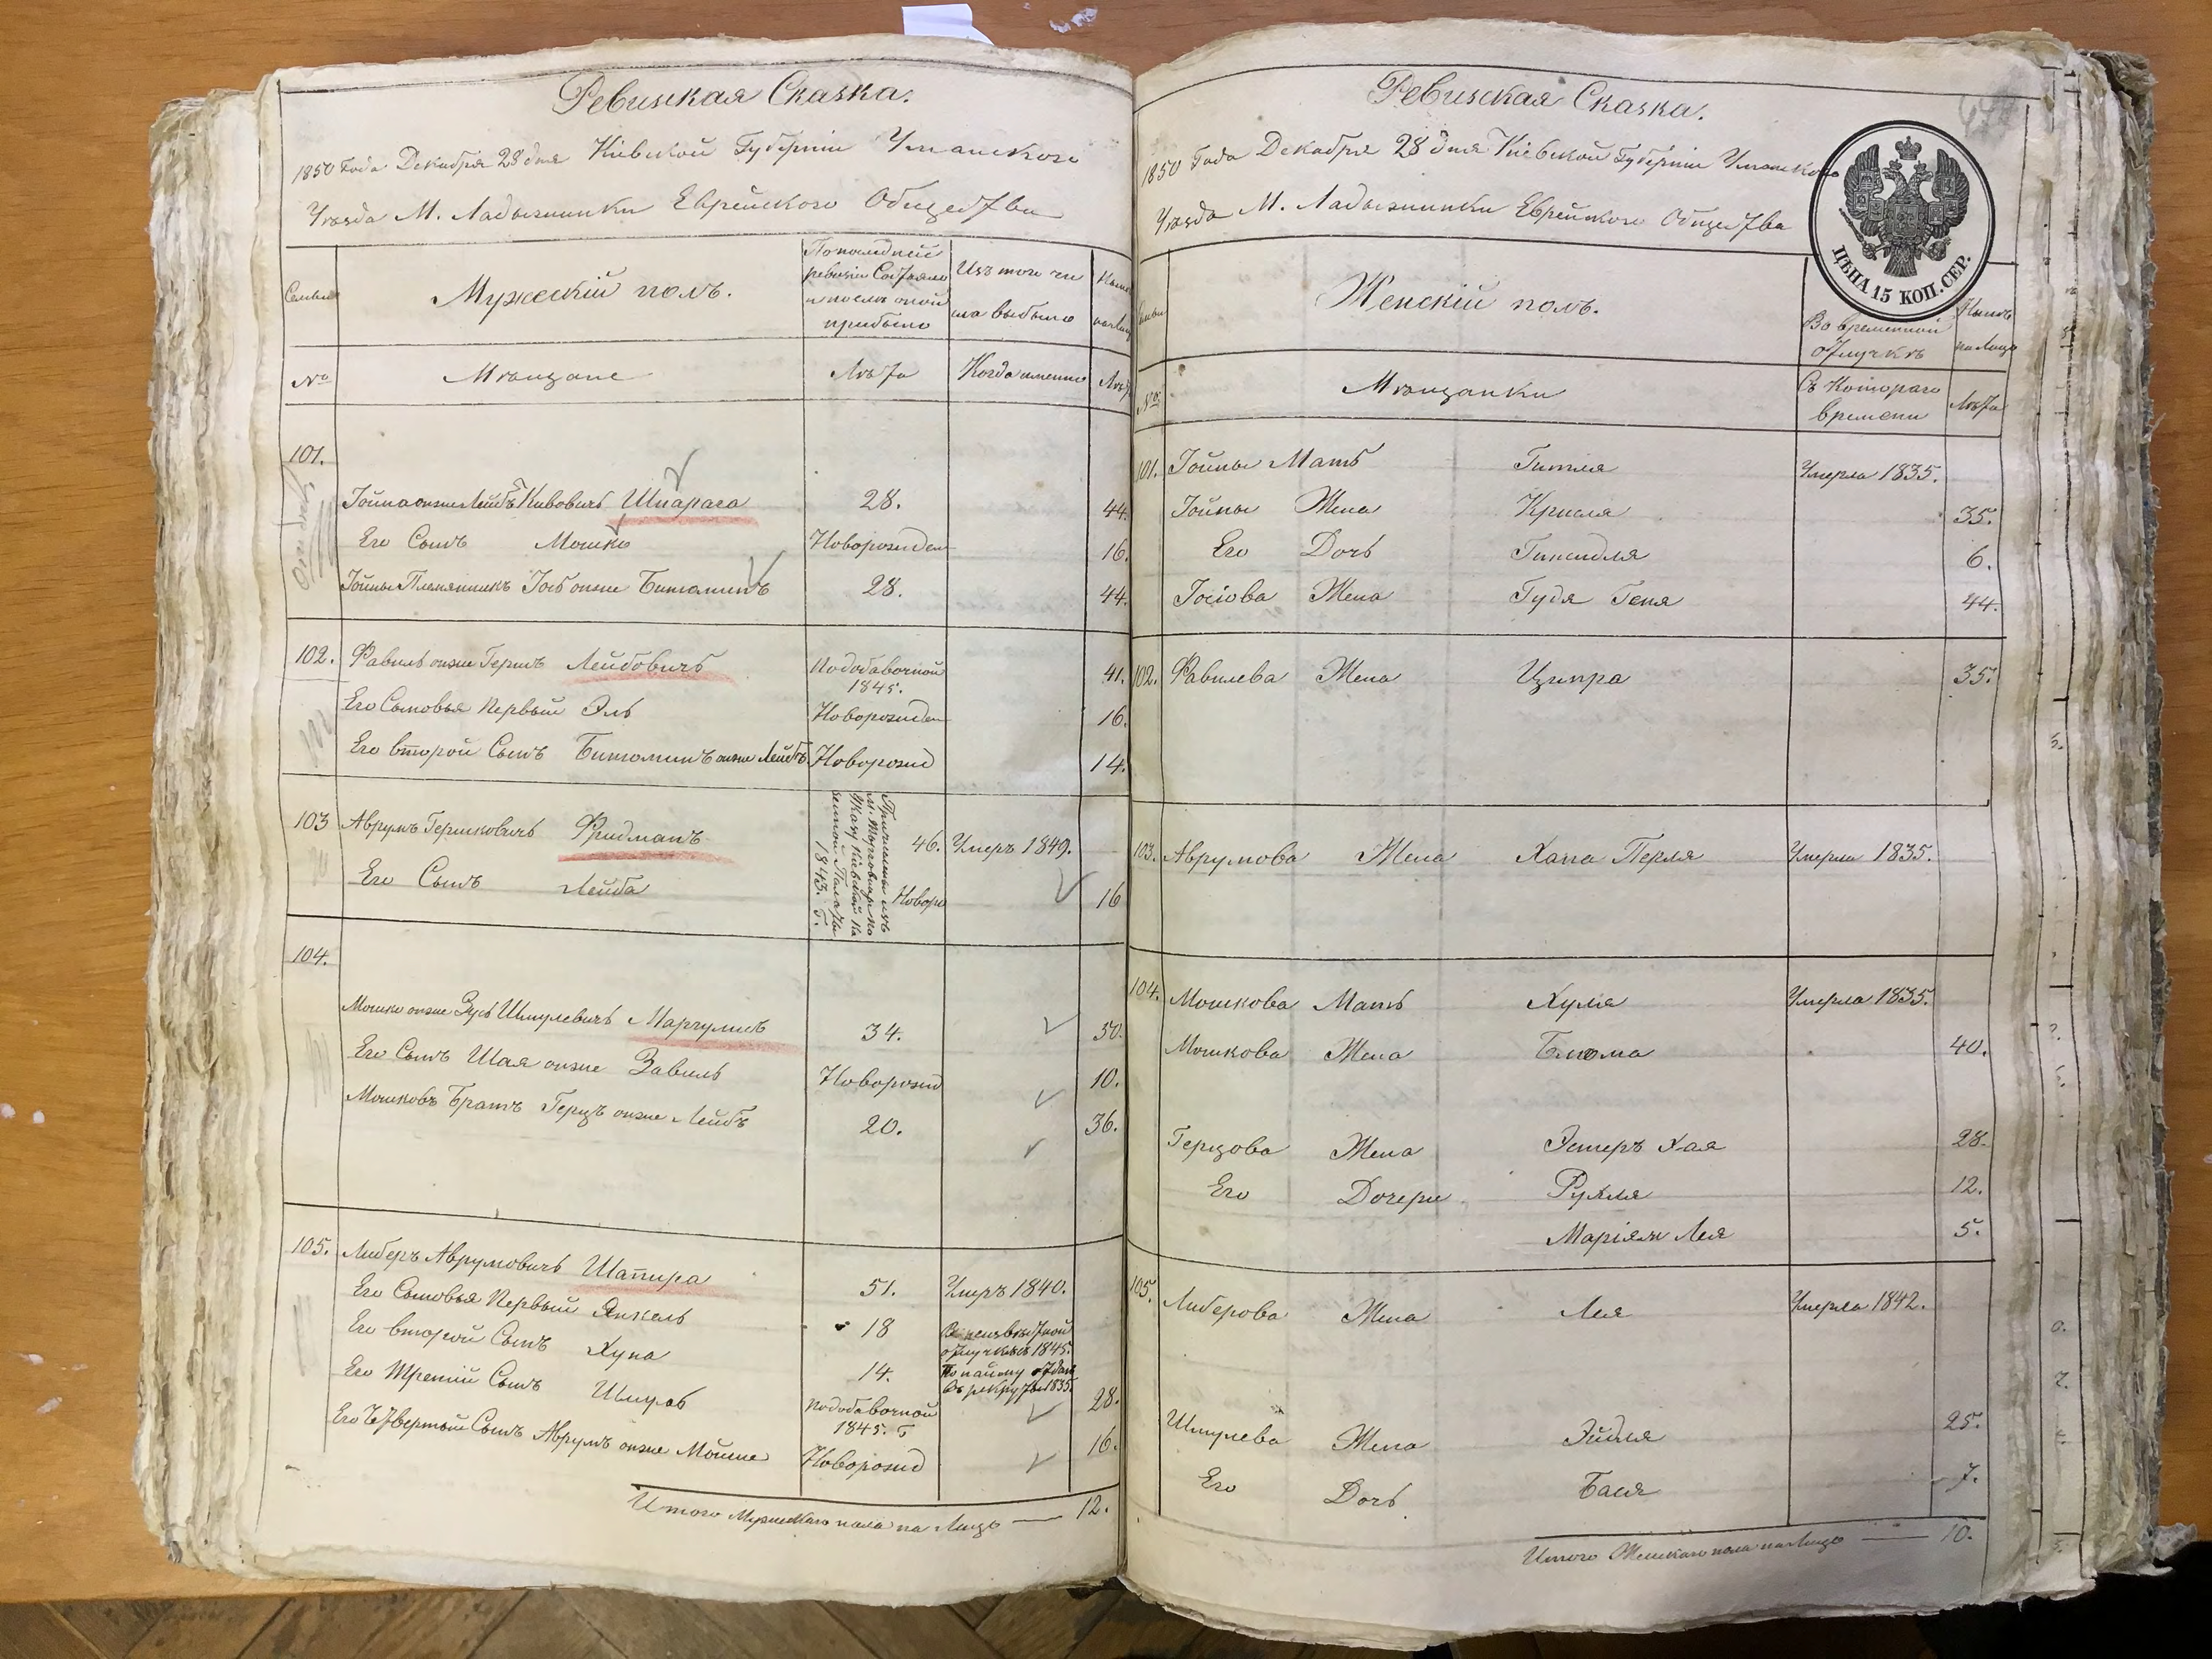 Ревизская Сказка.
1850 Года Декабря 28 дня Кіевской Губерніи Уманского
Уѣзда М. Ладыжинки Еврейского Общества
Семьи
Мужескій полъ.
По последней
ревизіи Состояло
и после оной
прибыло
Изъ того чи
сла выбыло
Ныне
на лицо
№
Мѣщане
Лѣта
Когда именно
Лѣта
101.
Іойна онже Лейбъ Кивовичъ Шпарага 28. 44.
Его Сынъ Мошко Новорожден 16.
Іойны Племянникъ Іосъ онже Биніоминъ 28. 44.
102. Фавиль онже Гершъ Лейбовичъ По добавочной 1845. 41.
Его Сыновья Первый Эль Новорожден 16.
Его второй Сынъ Биніоминъ онже Лейбъ Новорожд 14.
103 Аврумъ Гершковичъ Фридманъ 46. Умеръ 1849.
Его Сынъ Лейба Новоро 16
Причислены изъ
м. Торговицы по
Указу Кіевской Ка
зенной Палаты
1843. г.
104.
Мошко онже Зусь Шмулевичъ Маргулисъ 34. 50.
Его Сынъ Шая онже Завель Новорожд 10.
Мошковъ Братъ Герцъ онже Лейбъ 20. 36.
105. Либеръ Аврумовичъ Шапира 51. Умеръ 1840.
Его Сыновья Первый Янкель 18 В неизвѣстной
отлучкѣ съ 1845.
Его второй Сынъ Хуна 14. По найму отданъ
въ рекруты 1835.
Его Третій Сынъ Шмуль По добавочной 1845. г 28.
Его Четвертый Сынъ Аврумъ онже Мойше Новорожд 16.
Итого Мужескаго пола на лицо — 12.
Ревизская Сказка.
1850 Года Декабря 28 дня Кіевской Губерніи Уманского
Уѣзда М. Ладыжинки Еврейского Общества
ЦѢНА 15 КОП. СЕР.
Женскій полъ.
Во временной
отлучкѣ
Нынѣ
на лицо
№
Мѣщанки
Съ Котораго
времени
Лѣта
101. Іойны Мать Гитля Умерла 1835.
Іойны Жена Крисля 35.
Его Дочь 6.
Іосіова Жена Гудя Геня 44.
102. Фавилева Жена Ципра 35.
103. Аврумова Жена Хана Перля Умерла 1835.
104. Мошкова Мать Хумя Умерла 1835.
Мошкова Жена Блюма 40.
Герцова Жена Эстеръ Хая 28.
Его Дочери Рухля 12.
Маріям Лея 5.
105. Либерова Жена Лея Умерла 1842.
Шмулева Жена Эйдля 25.
Его Дочь Бася 7.
Итого Женскаго пола на лицо — 10.